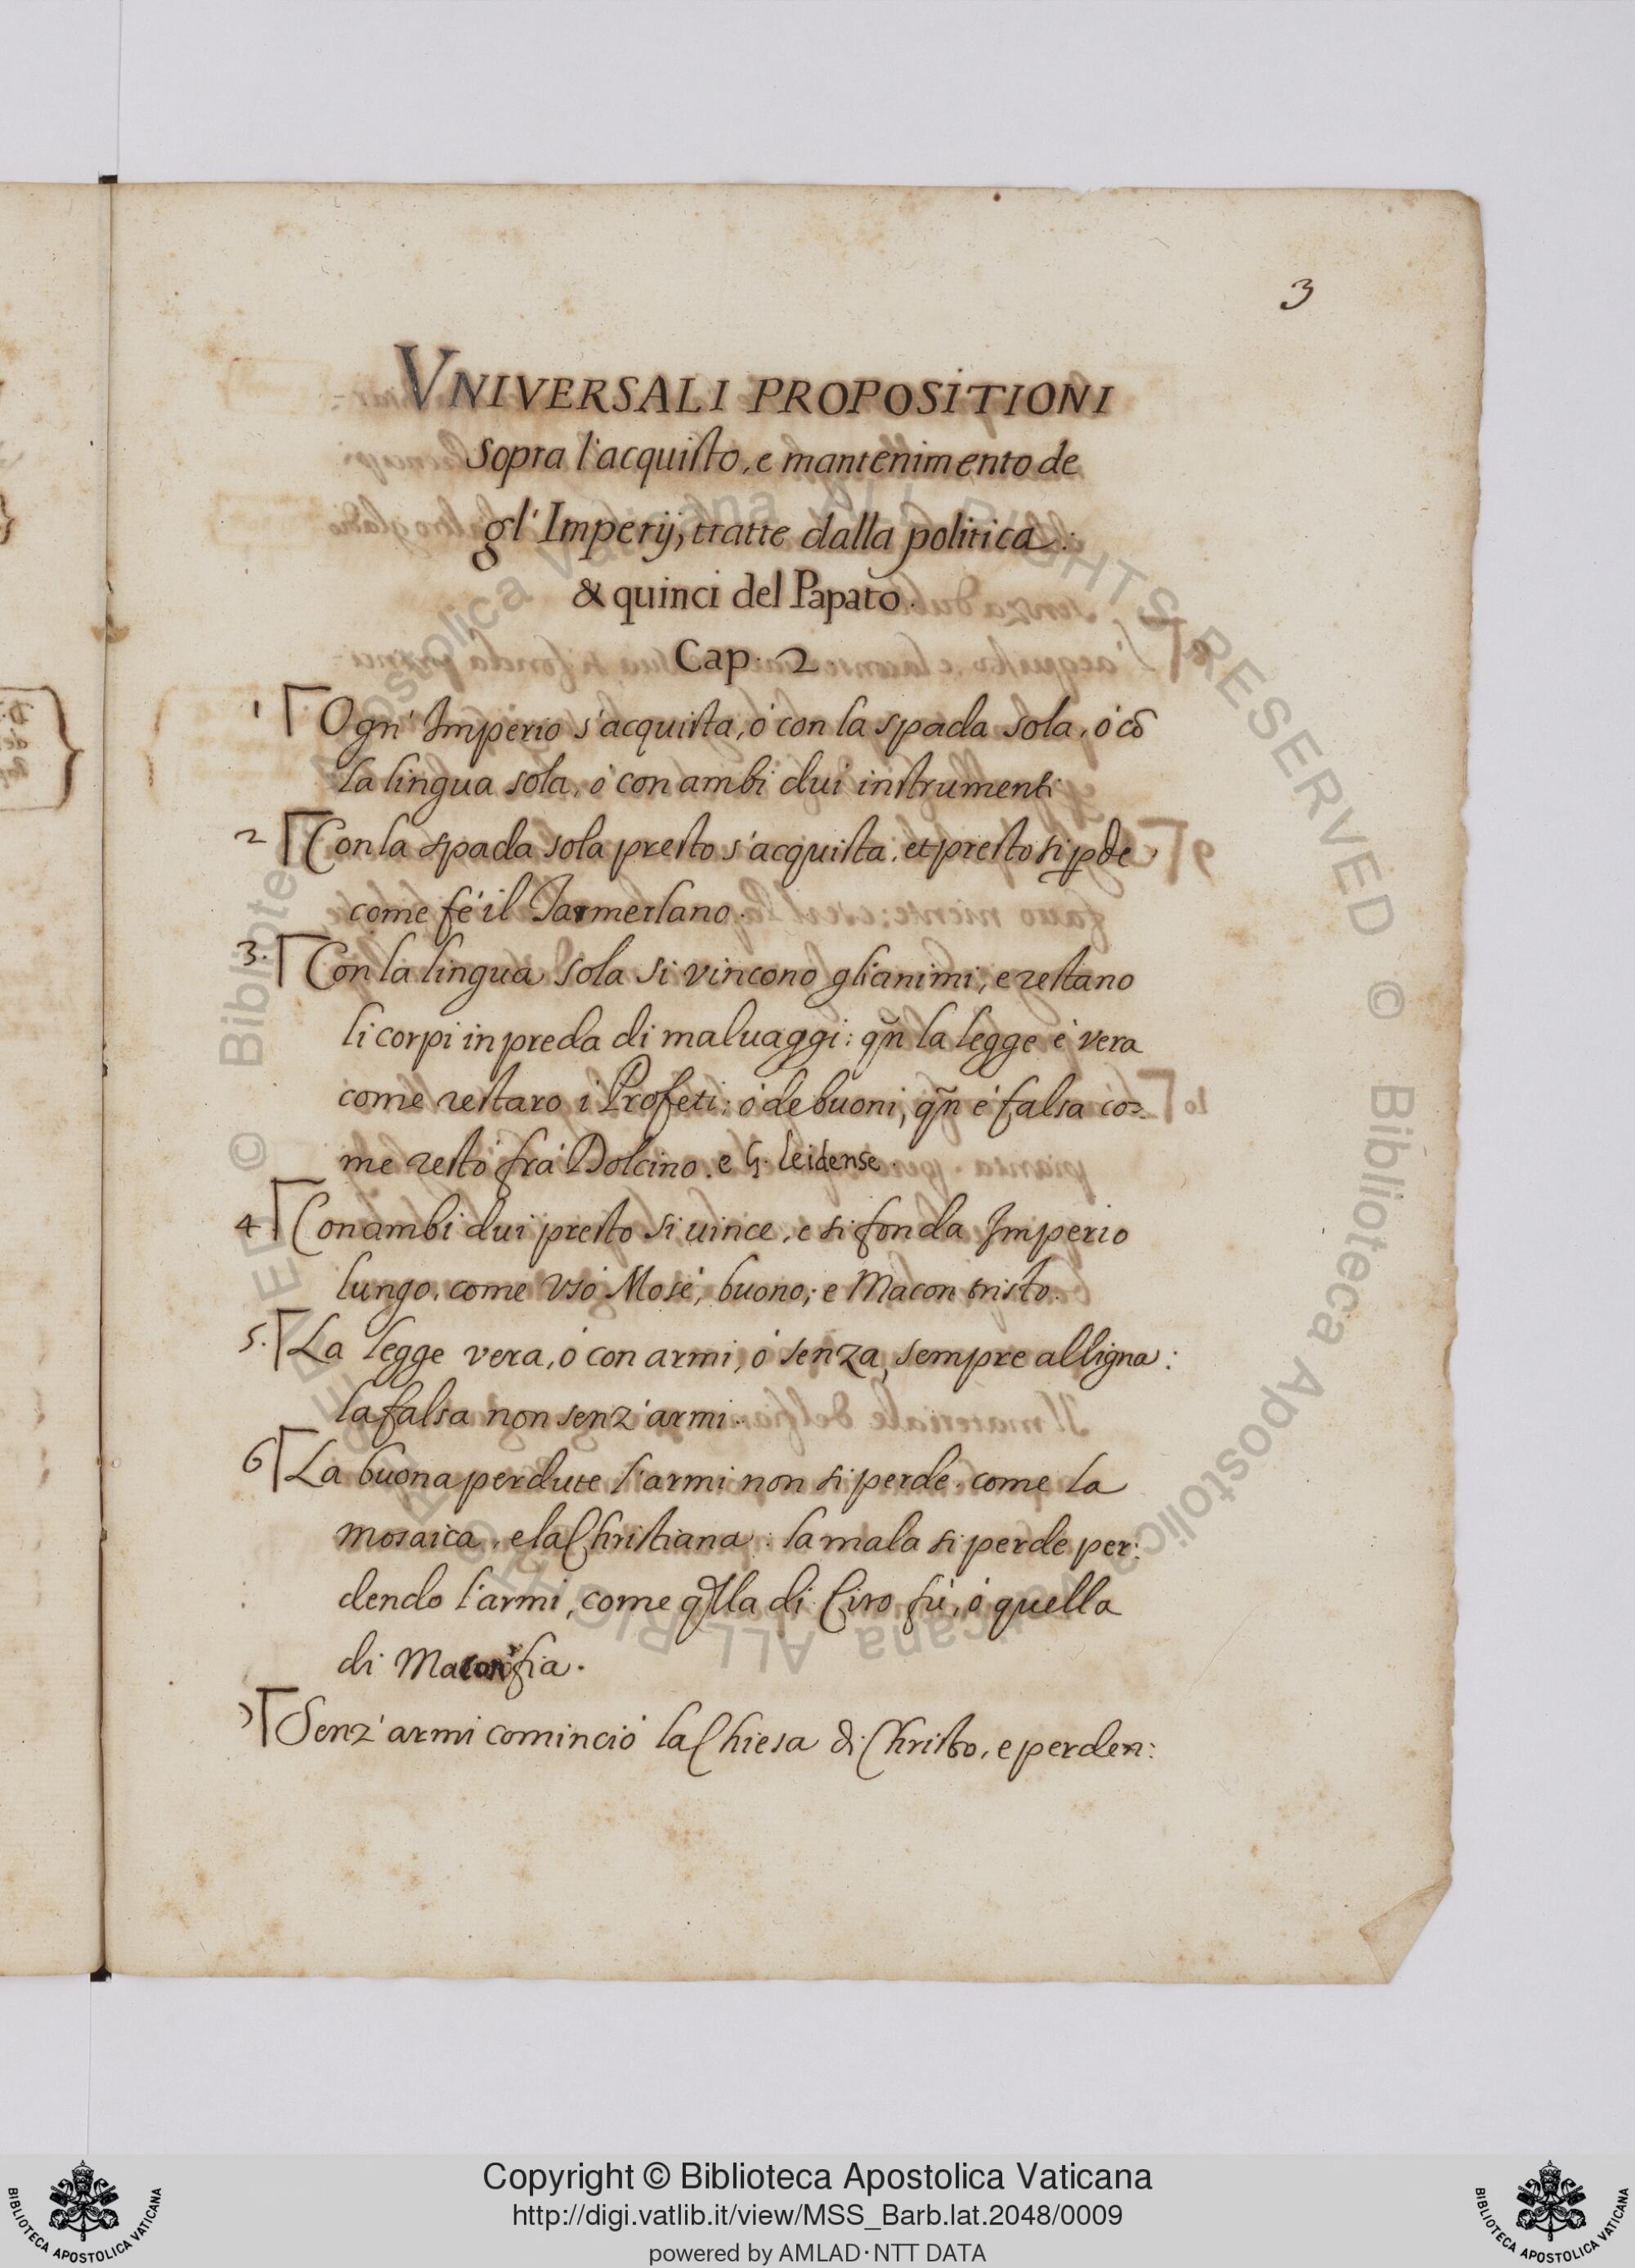 3
VNIVERSALI PROPOSITIONI
sopra l'acquisto, e mantenimento de
gl' Imperij, tratte dalla politica:
& quinci del Papato.
Cap. 2
1 Ogn' Imperio s'acquista, ó con la spada sola, ó cõ
la lingua sola, ó con ambi dui instrumenti
2 Con la spada sola presto s'acquista, et presto si ꝑde
come fé il Tarmerlano.
3. Con la lingua sola si vincono gl'animi, e restano
li corpi in preda di maluaggi: qñ la legge é vera
come restaro i Profeti: ó de buoni, qñ é falsa có-
me restó frà Dolcino. e G. Leidense.
4 Con ambi dui presto si vince, e si fonda Imperio
lungo, come vsó Mosé, buono; e Macon tristo.
5. La legge vera, ó con armi, ó senza, sempre alligna:
la falsa non senz'armi.
6 La buona perdute l'armi non si perde, come la
mosaica, e la Christiana: la mala si perde per:
dendo l'armi, come qlla di Ciro fù, ó quella
di fia.
7 Senz'armi cominció la Chiesa di Christo, e perden:
© Biblioteca Apostolica Vaticana ALL RIGHTS RESERVED
© Biblioteca Apostolica Vaticana ALL RIGHTS RESERVED
BIBLIOTECA APOSTOLICA VATICANA
Copyright © Biblioteca Apostolica Vaticana
http://digi.vatlib.it/view/MSS_Barb.lat.2048/0009
powered by AMLAD·NTT DATA
BIBLIOTECA APOSTOLICA VATICANA